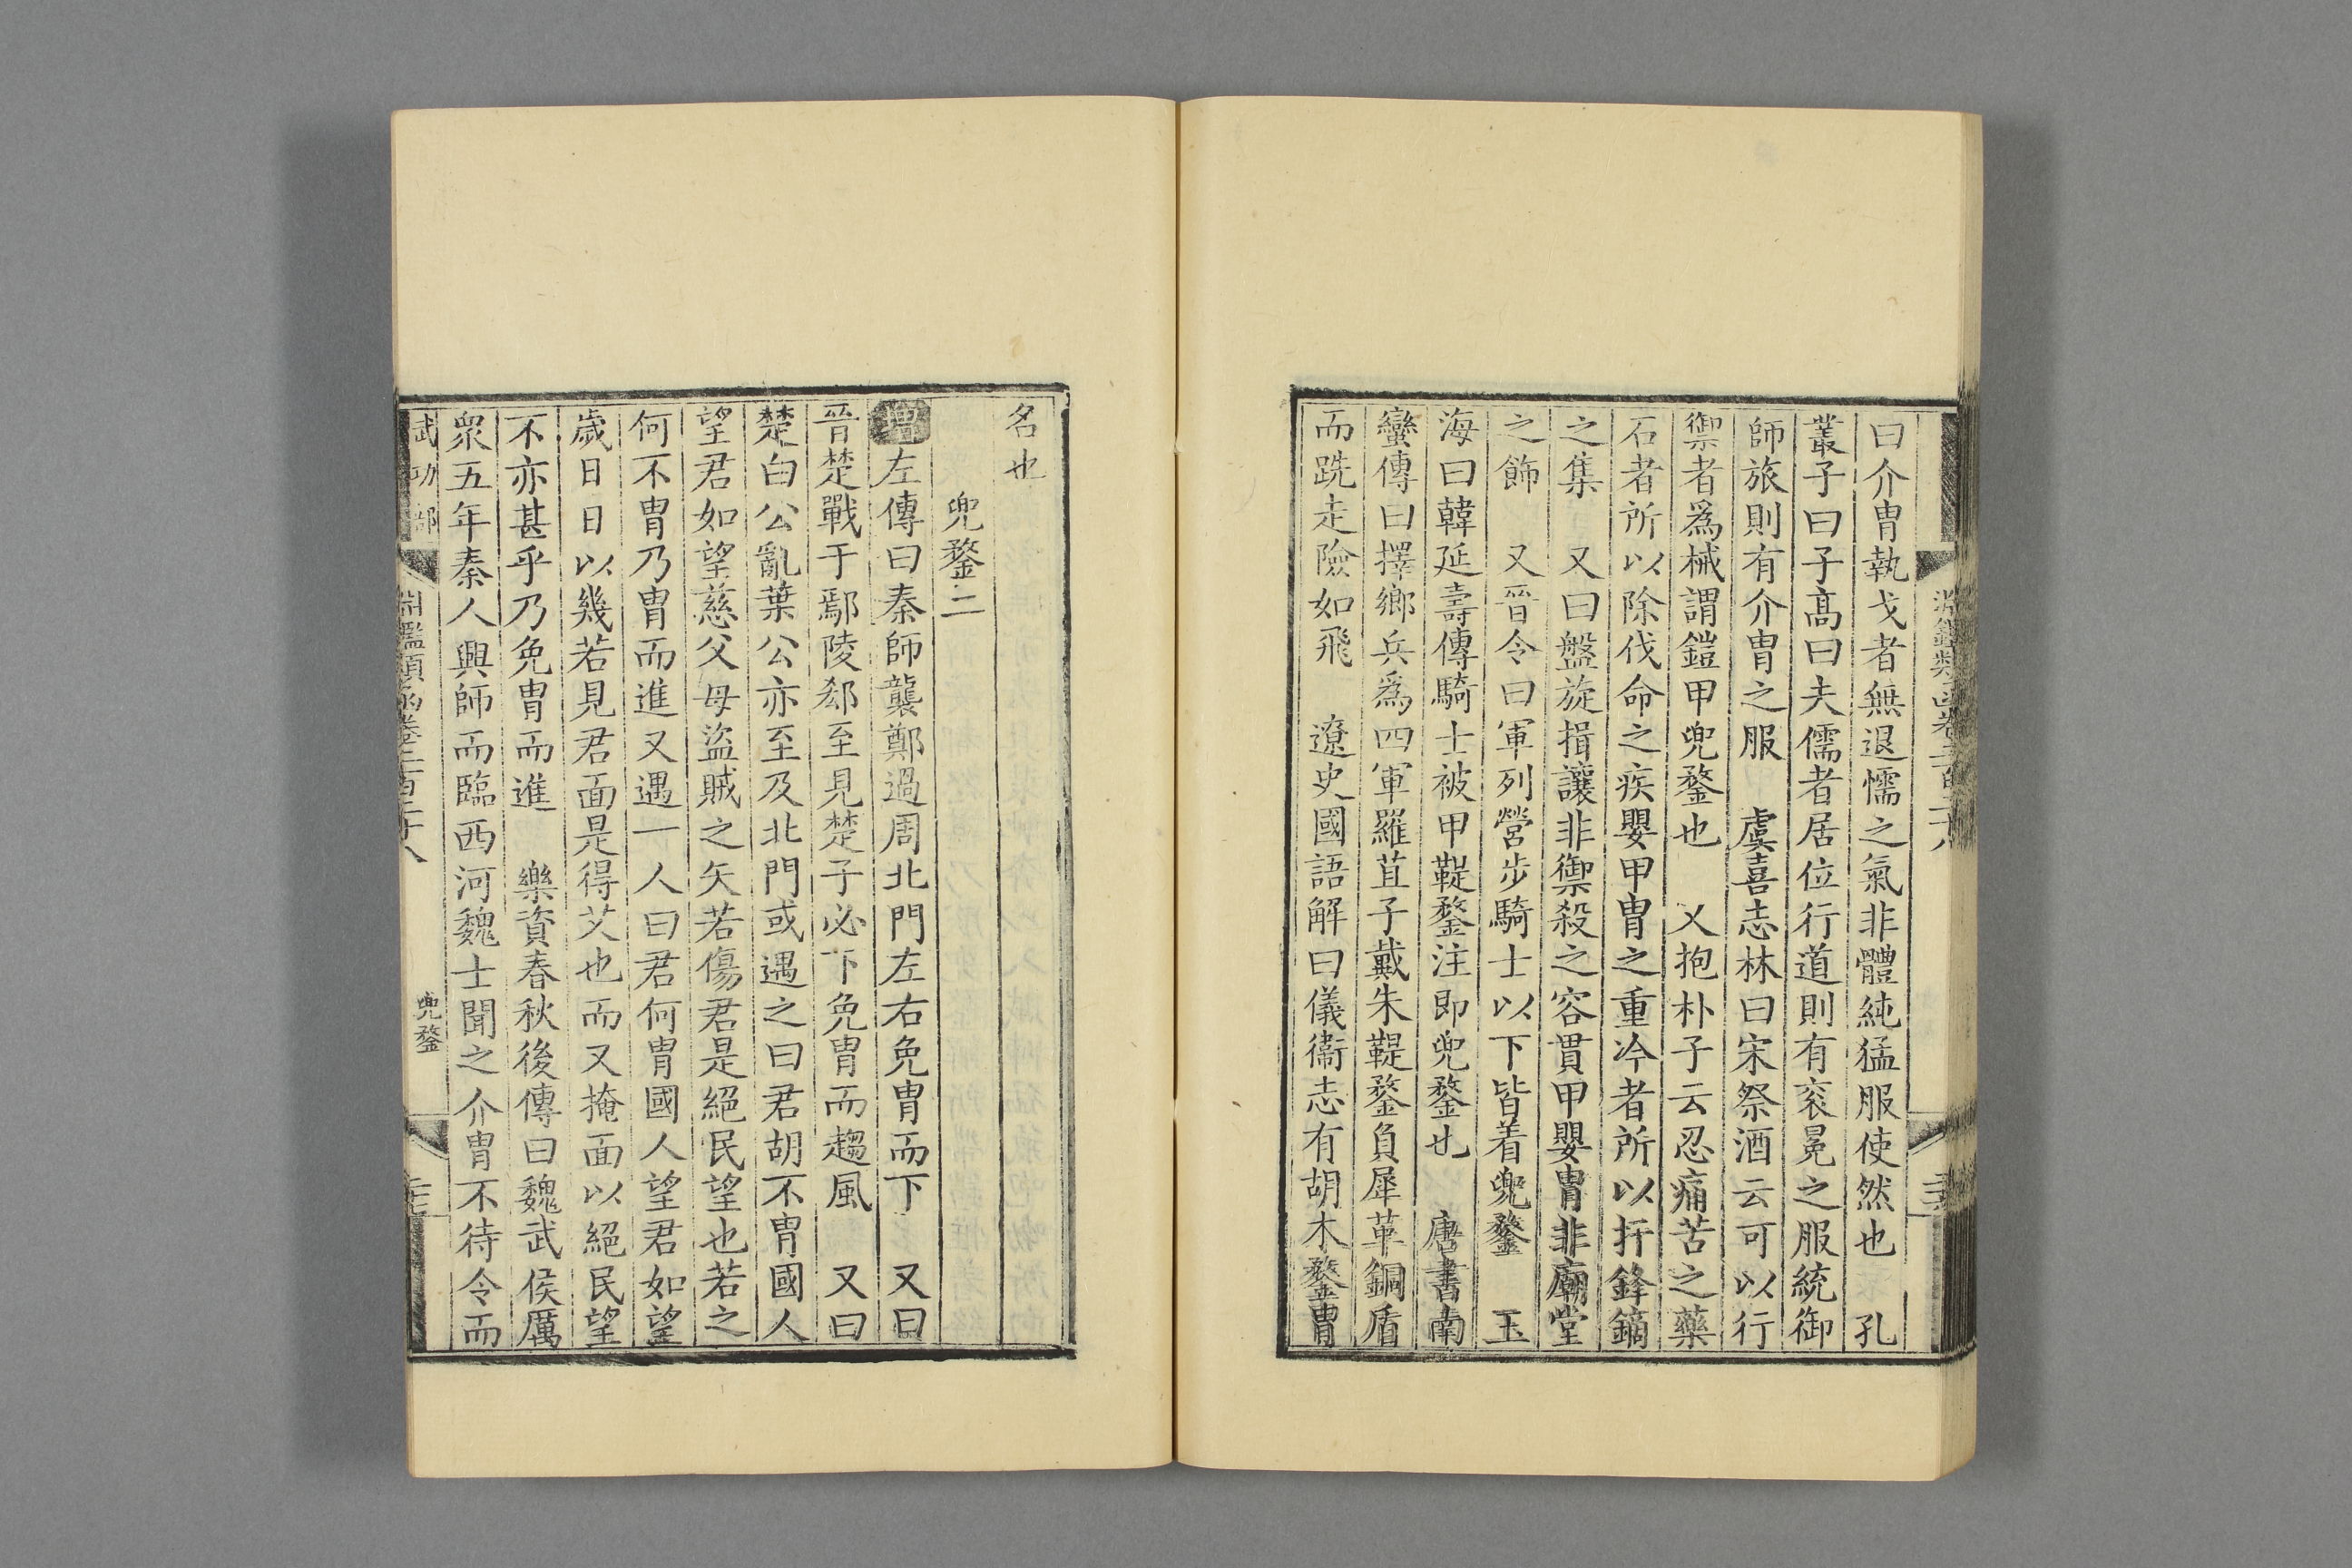 曰介胄執戈者無退懦之氣非體純猛服使然也　孔
叢子曰子高曰夫儒者居位行道則有袞冕之服統御
師旅則有介胄之服　虞喜志林曰宋祭酒云可以行
禦者爲械謂鎧甲兜鍪也　又抱朴子云忍痛苦之藥
石者所以除伐命之疾嬰甲胄之重冷者所以扞鋒鏑
之集　又曰盤旋揖讓非禦殺之容貫甲嬰胄非廟堂
之飾　又晉令曰軍列營步騎士以下皆着兜鍪　玉
海曰韓延壽傳騎士被甲鞮鍪注即兜鍪也　唐書南
蠻傳曰擇鄉兵爲四軍羅苴子戴朱鞮鍪負犀革銅盾
而跣走險如飛　遼史國語解曰儀衞志有胡木鍪胄
名也
兜鍪二
增左傳曰秦師襲鄭過周北門左右免胄而下　又曰
晉楚戰于鄢陵郄至見楚子必下免胄而趨風　又曰
楚白公亂葉公亦至及北門或遇之曰君胡不胄國人
望君如望慈父母盜賊之矢若傷君是絕民望也若之
何不胄乃胄而進又遇一人曰君何胄國人望君如望
歲日日以幾若見君面是得艾也而又掩面以絕民望
不亦甚乎乃免胄而進　樂資春秋後傳曰魏武侯厲
衆五年秦人興師而臨西河魏士聞之介胄不待令而
武功部　淵鑑類函卷二百二十八　兜鍪